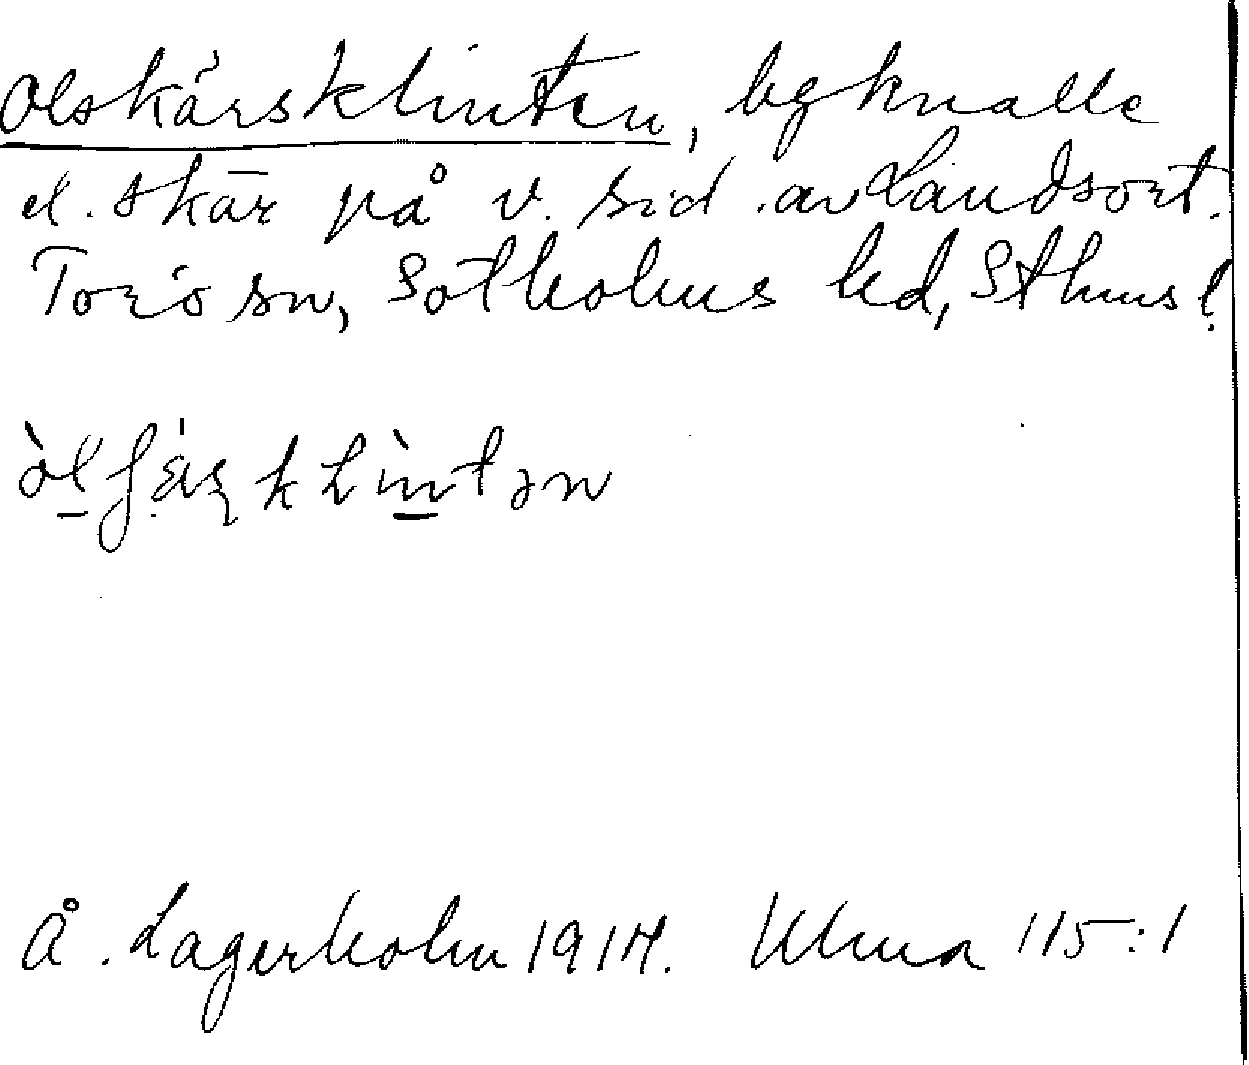 Olskärsklinten, bgknalle
el. skär på v. sid. av Landsort.
Torö sn, Sotholms hd, Sthms l.
Å. Lagerholm 1914. Ulma 115:1